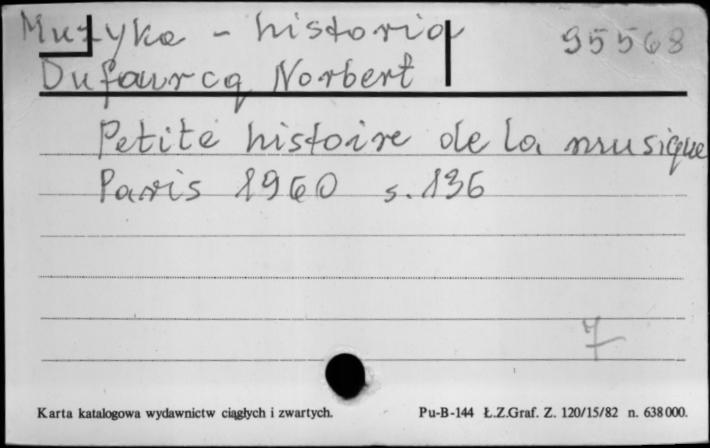 Muzyka - historia 95568
Dufourcq Norbert
Petite histoire de la musique
Paris 1960 s. 136
7
Karta katalogowa wydawnictw ciągłych i zwartych. Pu-B-144 Ł.Z.Graf. Z. 120/15/82 n. 638000.